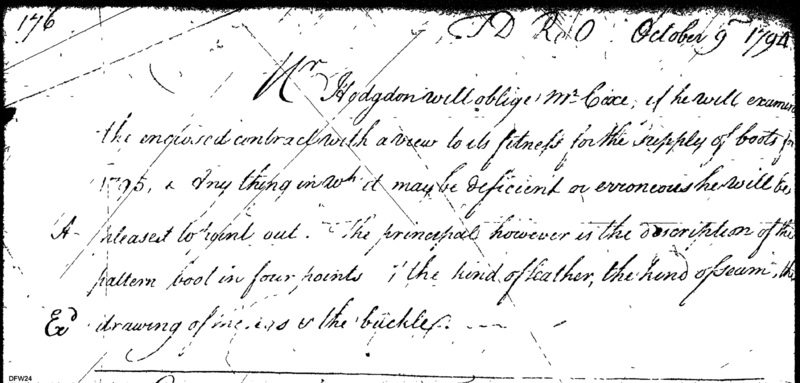 176
T D R O October 9th 1794
Mr Hodgdon will oblige Mr Coxe, if he will examine
the enclosed contract with a view to its fitness for the supply of boots for
1795, & any thing in wh it may be deficient or erroneous he will be
pleased to point out. The principal however is the description of the
pattern boot in four points; the kind of leather, the kind of seam, the
Exd drawing of & the buckles.
DFW24